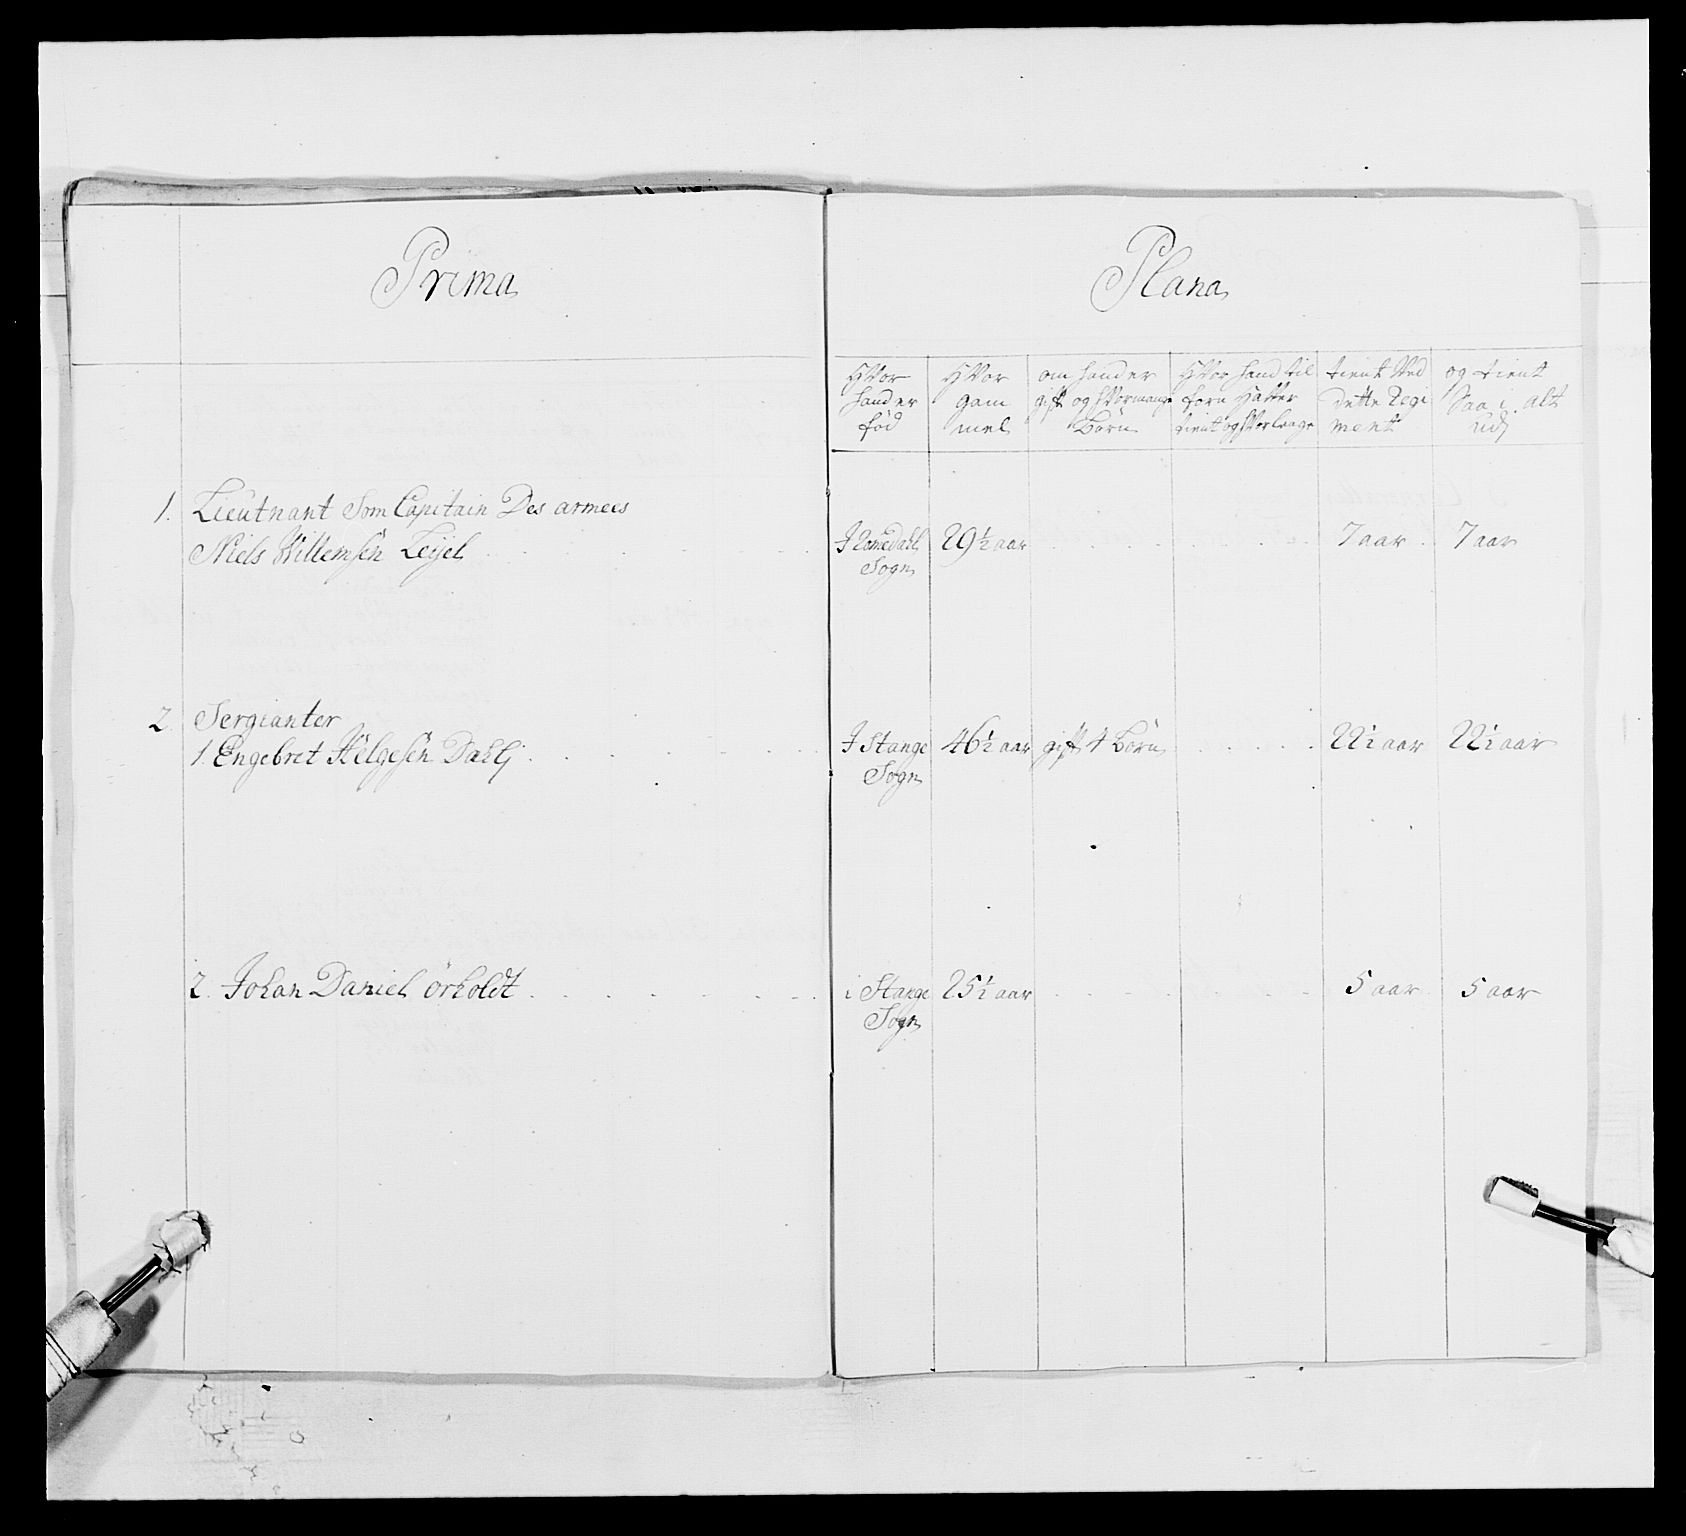 Prima
Plana
HVor
hand er
fød
HVor
gam
mel
om hand er
gift og hVormange
Børn
HVor hand til
forn Hafver
tient og hVorlænge
tient Ved
dette Regi
ment
og tient
Saa i alt
udj
1. Lieutnant Som Capitain Des armees
Niels Willemsen Leyel
J Romedahl
Sogn
29½ aar
7 aar
7 aar
2 Sergianter
1. Engebret Helgesen Dahlj
J Stange
Sogn
46½ aar
gift 4 Børn
22½ aar
22½ aar
2. Johan Daniel örholdt
i Stange
Sogn
25½ aar
5 aar
5 aar